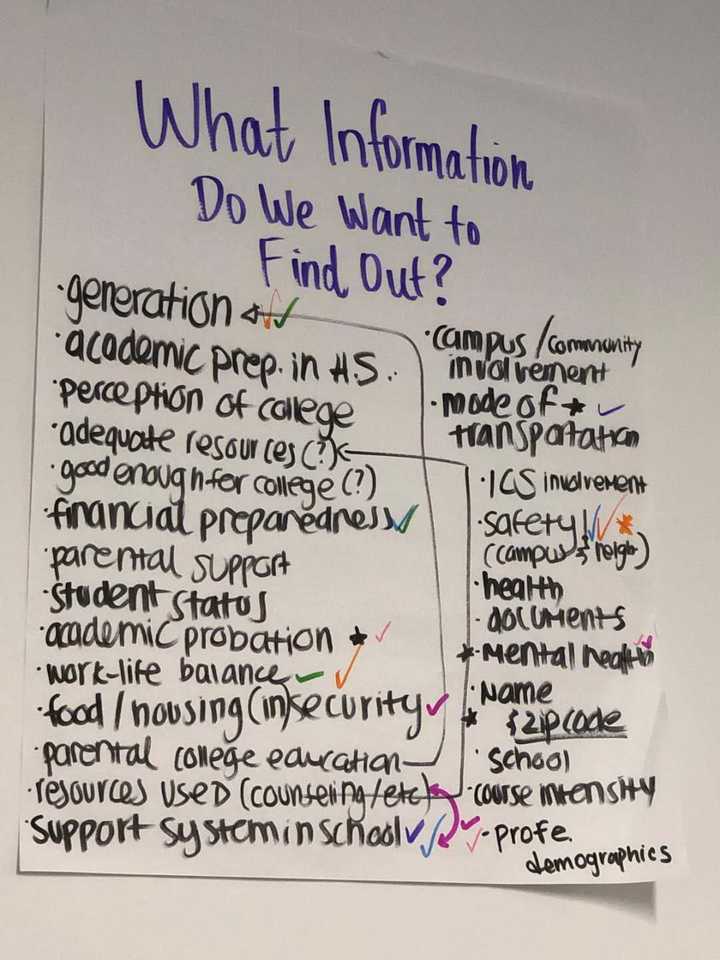 What Information
Do We Want to
Find Out?
·generation
·academic prep. in H.S.
·perception of college
·adequate resources (?)
·good enough for college (?)
·financial preparedness
·parental support
·student status
·academic probation
·work-life balance
·food / housing (in)security
·parental college education
·resources used (counseling/etc)
·support system in school
·campus / community
involvement
·mode of
transportation
·ICS involvement
·safety!
(campus & neigh)
·health
·documents
·Mental health
·Name
& zip code
·school
·course intensity
·profe.
demographics